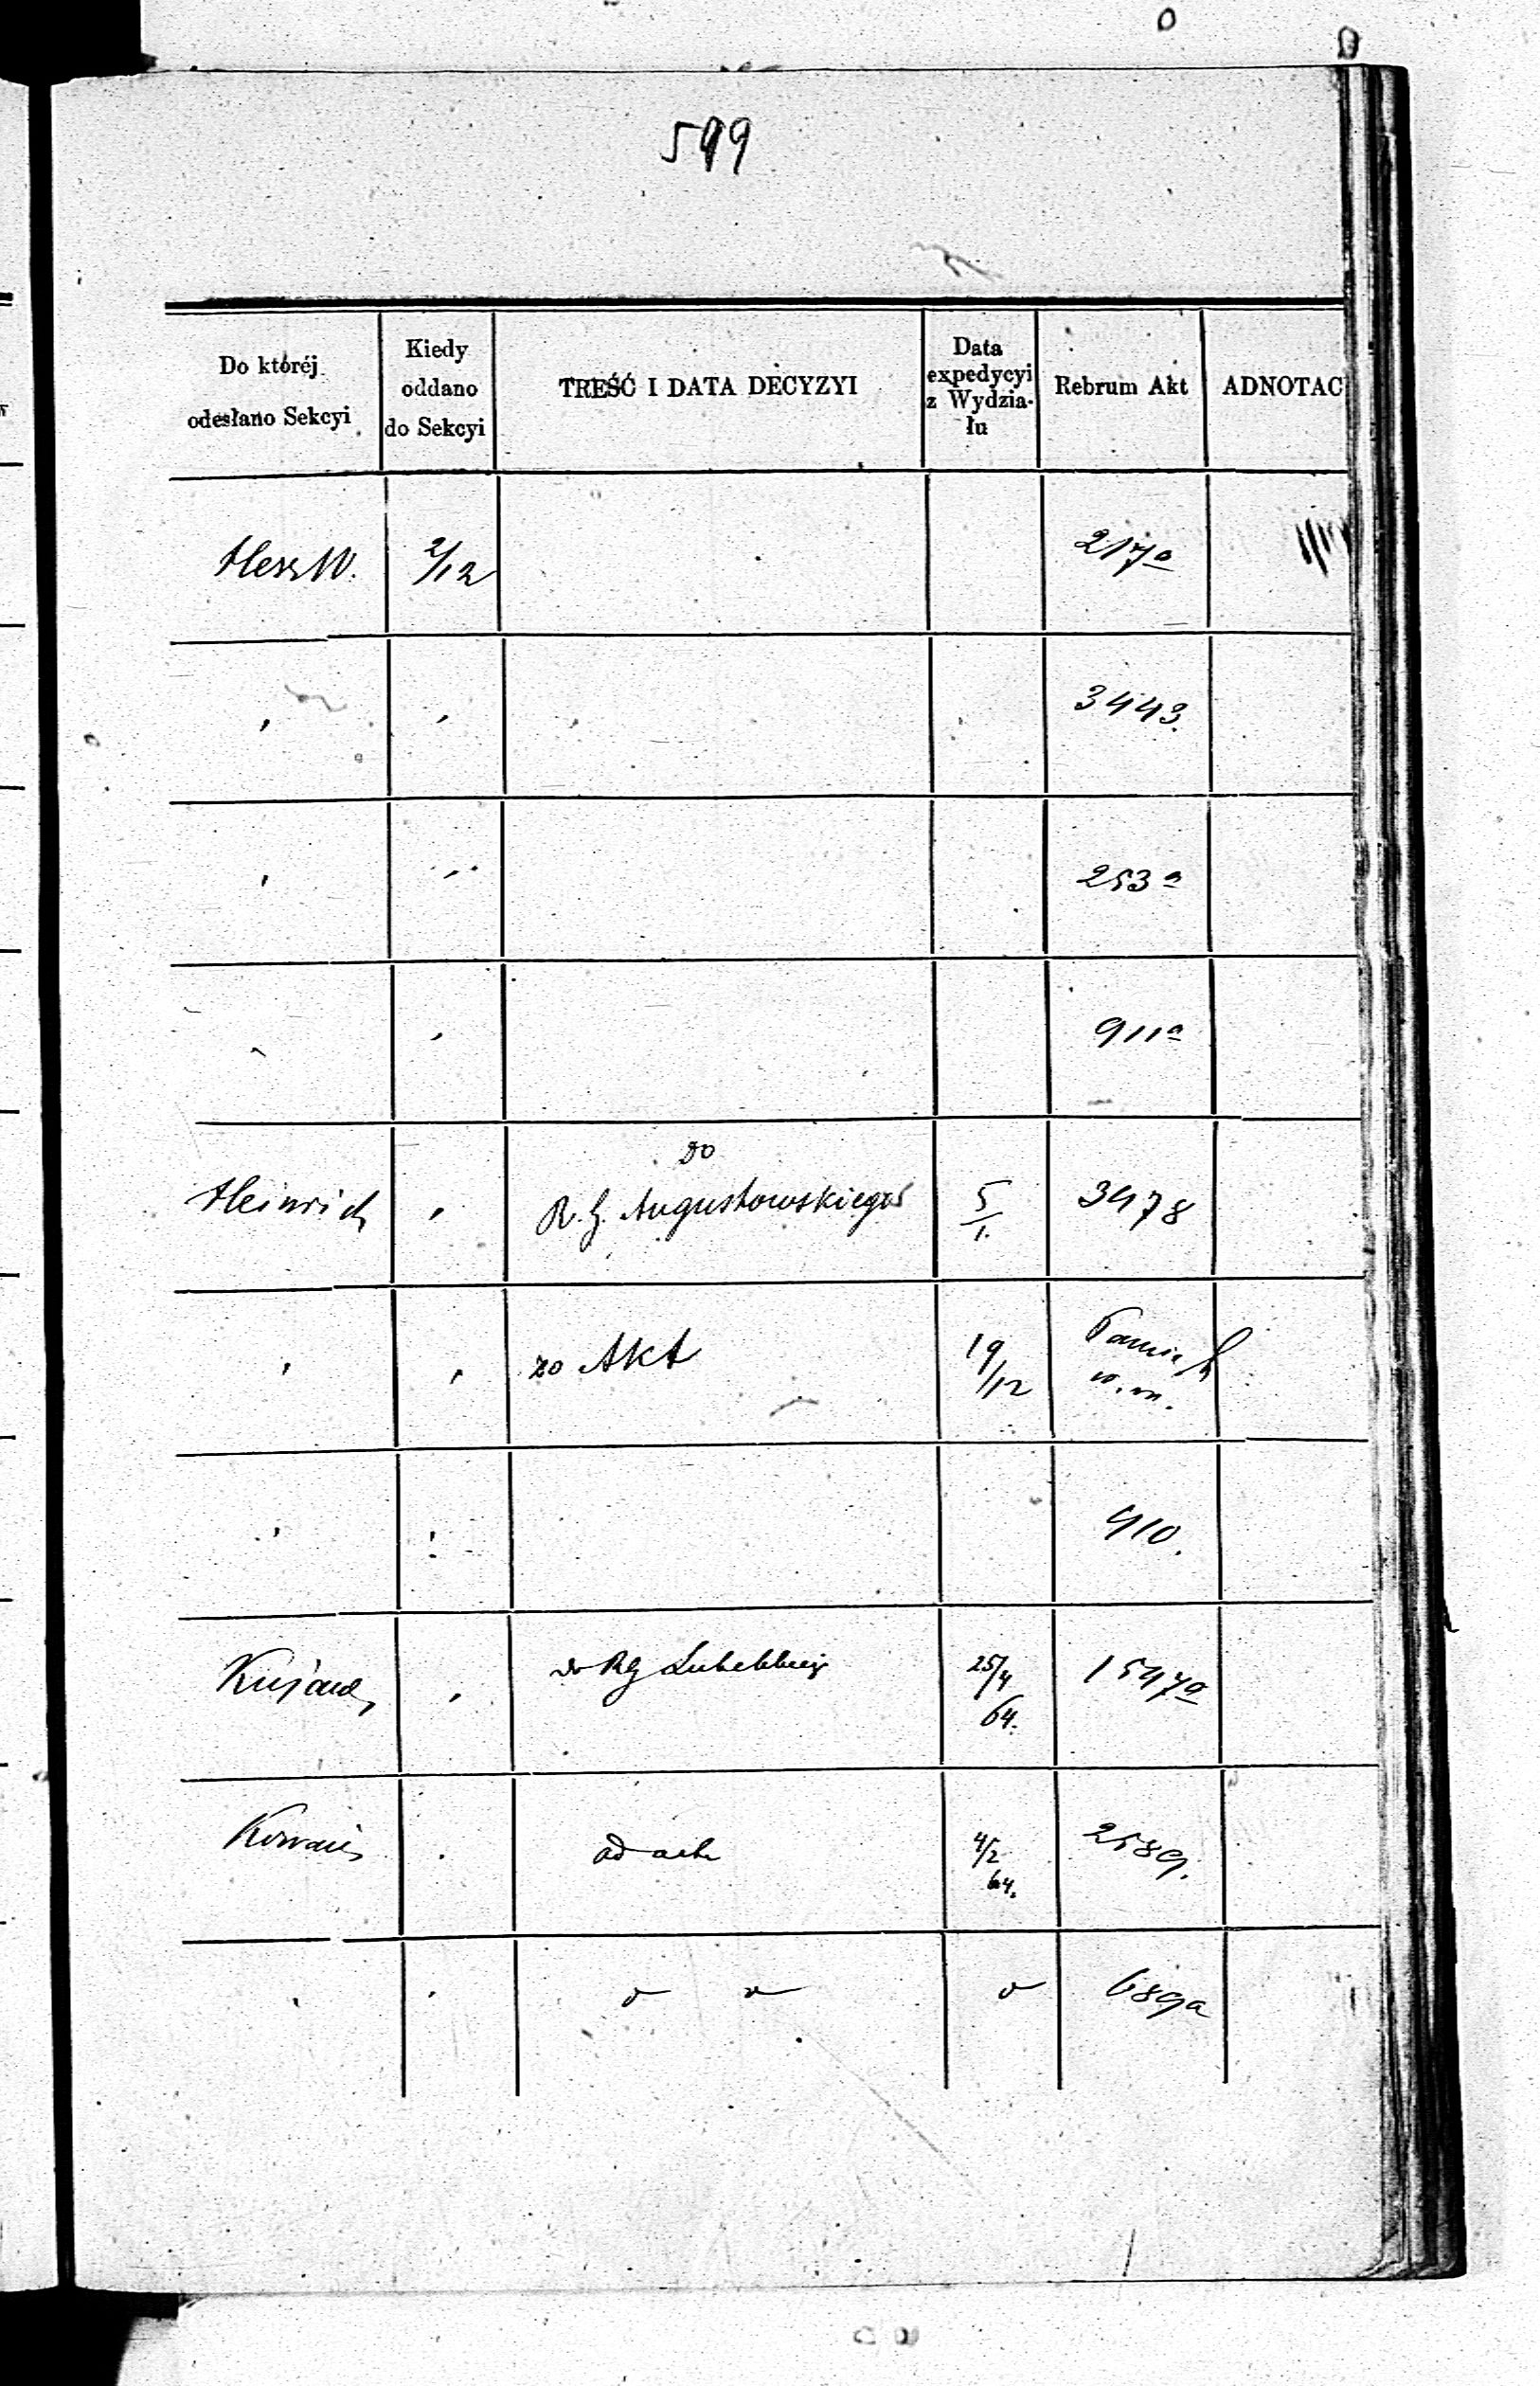 599
Do któréj odesłano Sekcyi
Kiedy oddano do Sekcyi
TREŚĆ I DATA DECYZYI
Data expedycyi z Wydzia- łu
Rebrum Akt
ADNOTAC
Hess W. 2/12 217a
" " 3443.
" " 253a
" " 911a
Do
Heinrich " R. G. Augustowskiego 5/1. 3478
" " do Akt 19/12
w.m.
" " 410.
" do RG Lubelskiej 25/4 64. 1547a
" ad acta 4/2 64. 2589.
" " " " " 689a